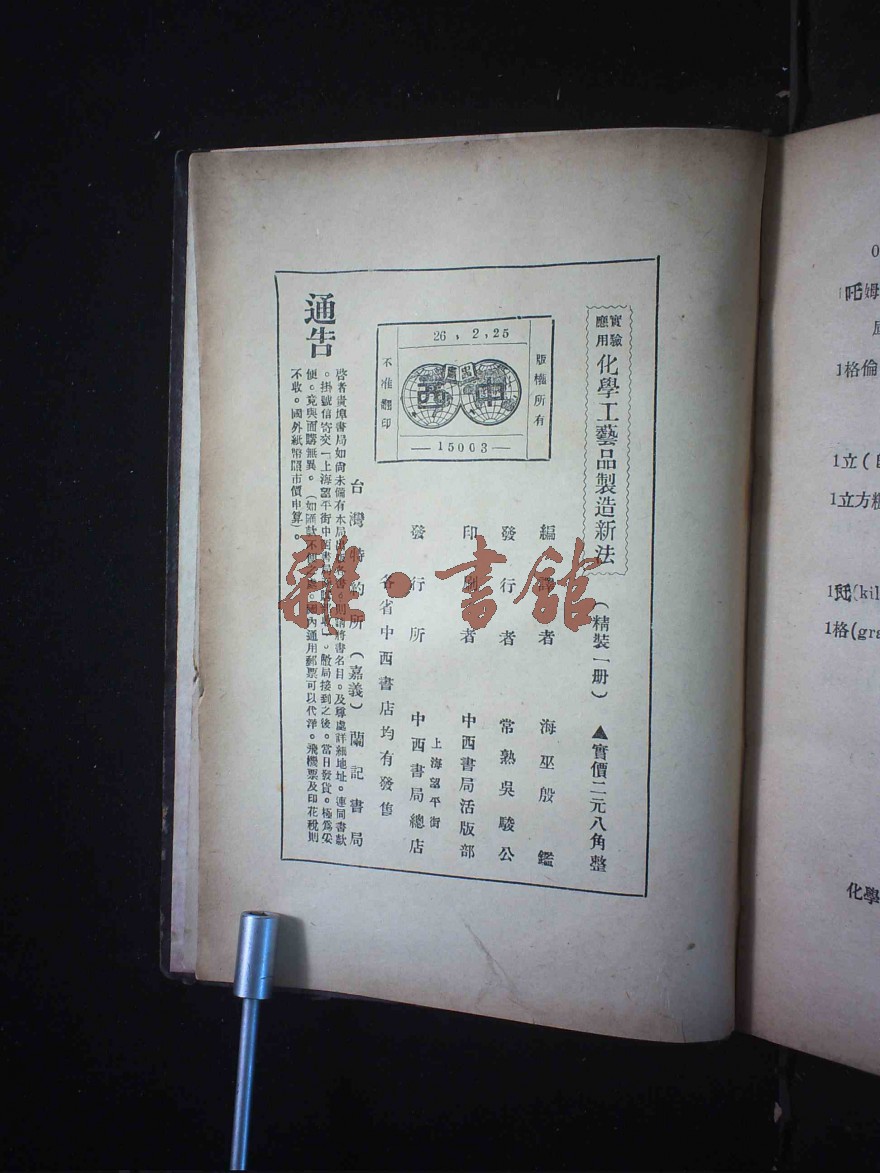 實驗
應用
化學工藝品製造新法
(精裝一册)
▲實價二元八角整
編譯者 海巫殷鑑
發行者 常熟吳駿公
印刷者 中西書局活版部
上海望平街
發行所 中西書局總店
各省中西書店均有發售
台灣特約所(嘉義)蘭記書局
版權所有
26,2,25
中西
15003
不准翻印
通告
啓者貴埠書局如尚未備有本局出版各書。則請將書名目。及尊處詳細地址。連同書款
。掛號信寄交「上海望平街中西書局」。敝局接到之後。當日發貨。極爲妥
便。竟與面購無異。(如匯款不便。國內通用郵票可以代洋。飛機票及印花稅則
不收。國外紙幣照市價申算)。
雜·書館
1格倫
1立(
1立方
(kil
1格(gra
化學